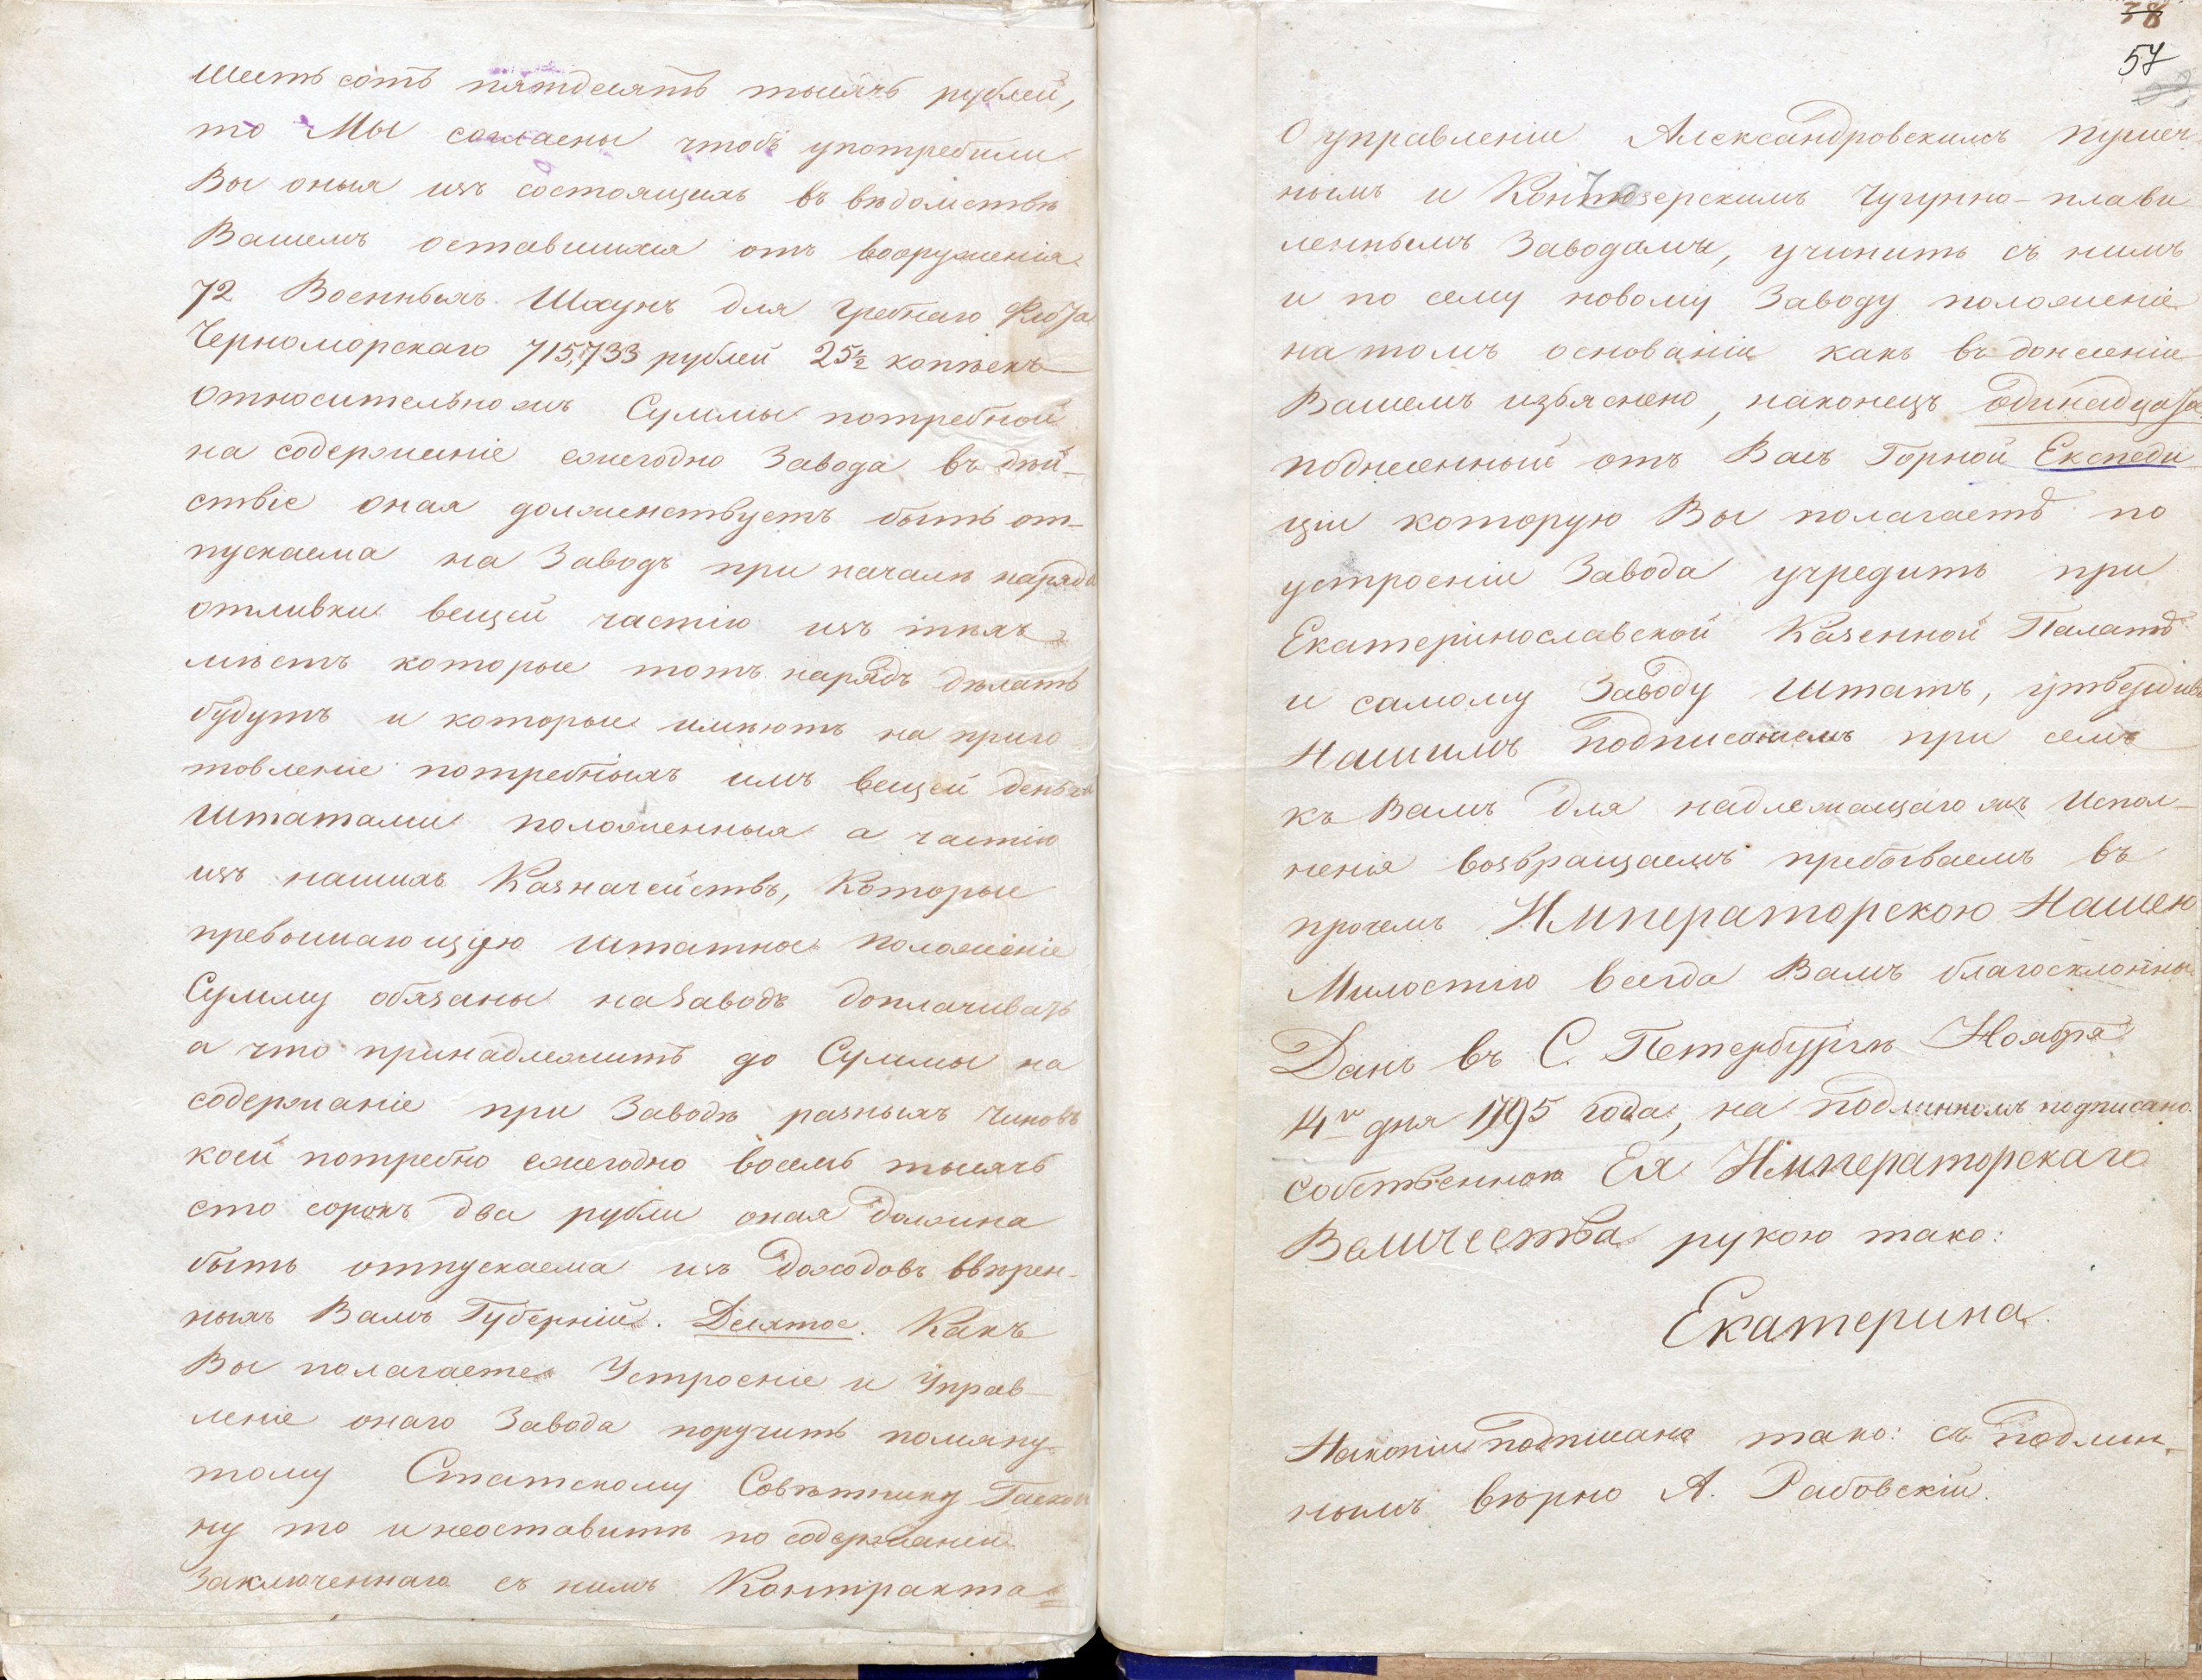 шесть сотъ пятдесятъ тысячь рублей,
то Мы согласны чтобъ употребили
Вы оныя изъ состоящихъ въ вѣдомствѣ
Вашемъ оставшихся отъ вооруженія
72 Военныхъ Шхунъ для гребнаго Флота
Черноморскаго 715,733 рублей 25½ копѣекъ
относительно жъ Суммы потребной
на содержаніе ежегодно Завода въ дѣй-
ствіе оная долженствуетъ быть от-
пускаема на Заводъ при началѣ наряда
отливки вещей частію изъ тѣхъ
мѣстъ которые тотъ нарядъ дѣлать
будутъ и которые имѣютъ на приго
товленіе потребныхъ имъ вещей деньги
Штатами положенныя а частію
изъ нашихъ Казначействъ, Которые
превышающую штатное положеніе
Сумму обязаны на Заводъ доплачивать
а что принадлежитъ до Суммы на
содержаніе при Заводѣ разныхъ чиновъ
коей потребно ежегодно восемь тысячь
сто сорокъ два рубли оная должна
быть отпускаема изъ доходовъ ввѣрен-
ныхъ Вамъ Губерній. Десятое. Какъ
Вы полагаете Устроеніе и Управ-
леніе онаго Завода поручить помяну-
тому Статскому Совѣтнику Гаско
ну то и неоставить по содержанію
Заключеннаго съ нимъ Контракта
38
57
О управленіи Александровскимъ пушеч-
нымъ и Кончозерскимъ чугунно-плави
леннымъ Заводамы, учинить съ нимъ
и по сему новому Заводу положеніе
на томъ основаніи какъ въ донесеніи
Вашемъ изъяснено, наконецъ одинадцатое
поднесенный отъ Васъ Горной Експеди
ціи которую Вы полагаете по
устроеніи Завода учредить при
Екатеринославской Казенной Палатѣ
и самому Заводу Штатъ, утвердивъ
Нашимъ подписаніемъ при семъ
къ Вамъ для надлежащаго жъ Испол-
ненія возвращаемъ пребываемъ въ
прочемъ Императорскою Нашею
Милостію всегда Вамъ благосклонны
Данъ въ С. Петербургѣ Ноября
14го дня 1795 года, на подлинномъ подписано
собственною Ея Императорскаго
Величества рукою тако:
Екатерина.
На копіи подписано тако: съ подлин-
нымъ вѣрно А. Рабовскій.